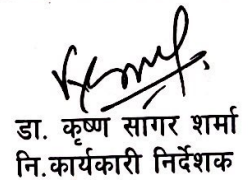 डा. कृष्ण सागर शर्मा
नि.कार्यकारी निर्देशक